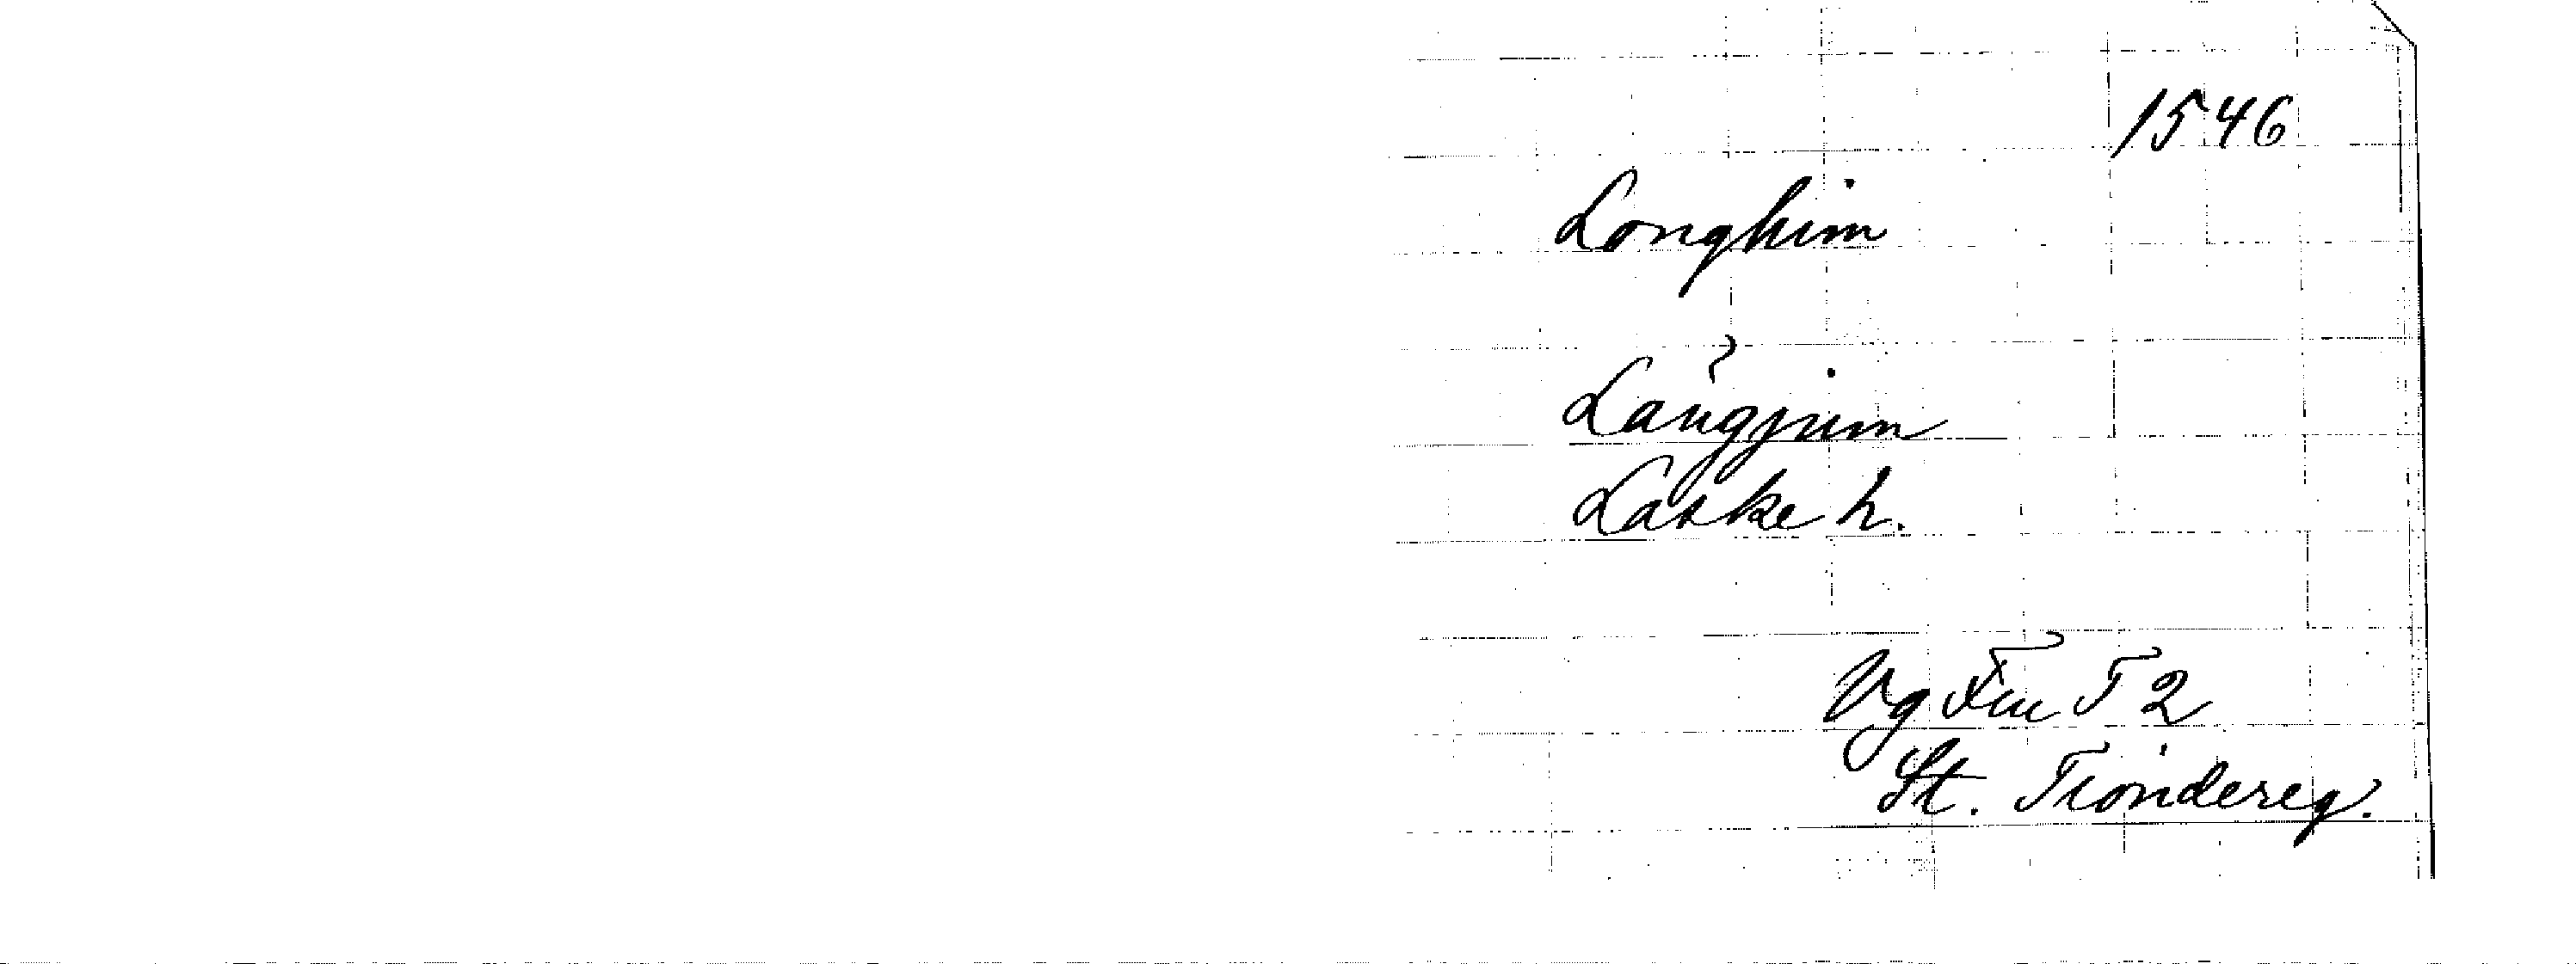 1546
Longhim
Långjum
Laske h.
Vg Fru T 2
St. Tiondereg.